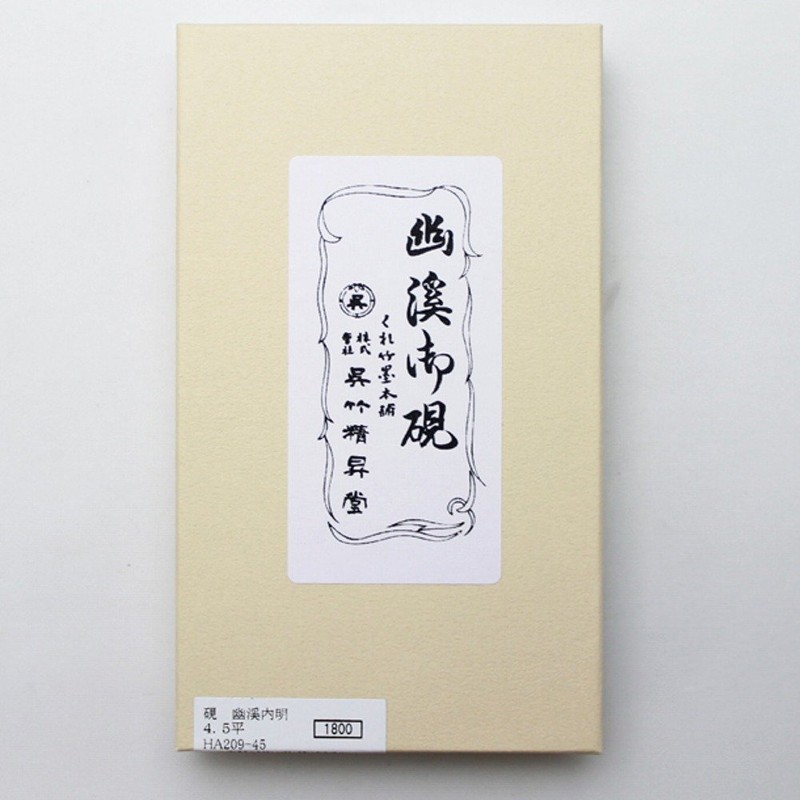 幽溪御硯
くれ竹墨本舗
株式会社 呉竹精昇堂
呉
硯 幽溪内明
4.5平
1800
HA209-45